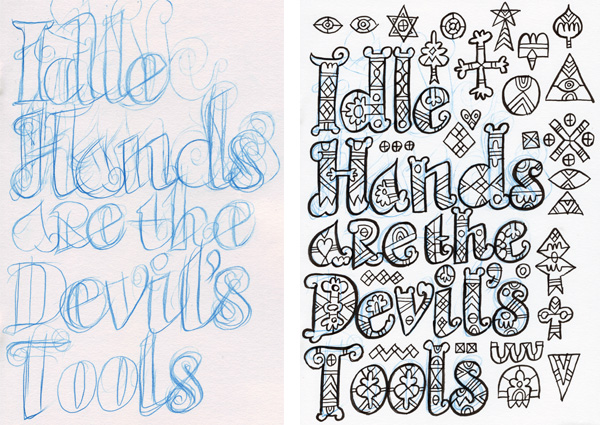 Idle
Hands
are the
Devil's
Tools
Idle
Hands
are the
Devil's
Tools